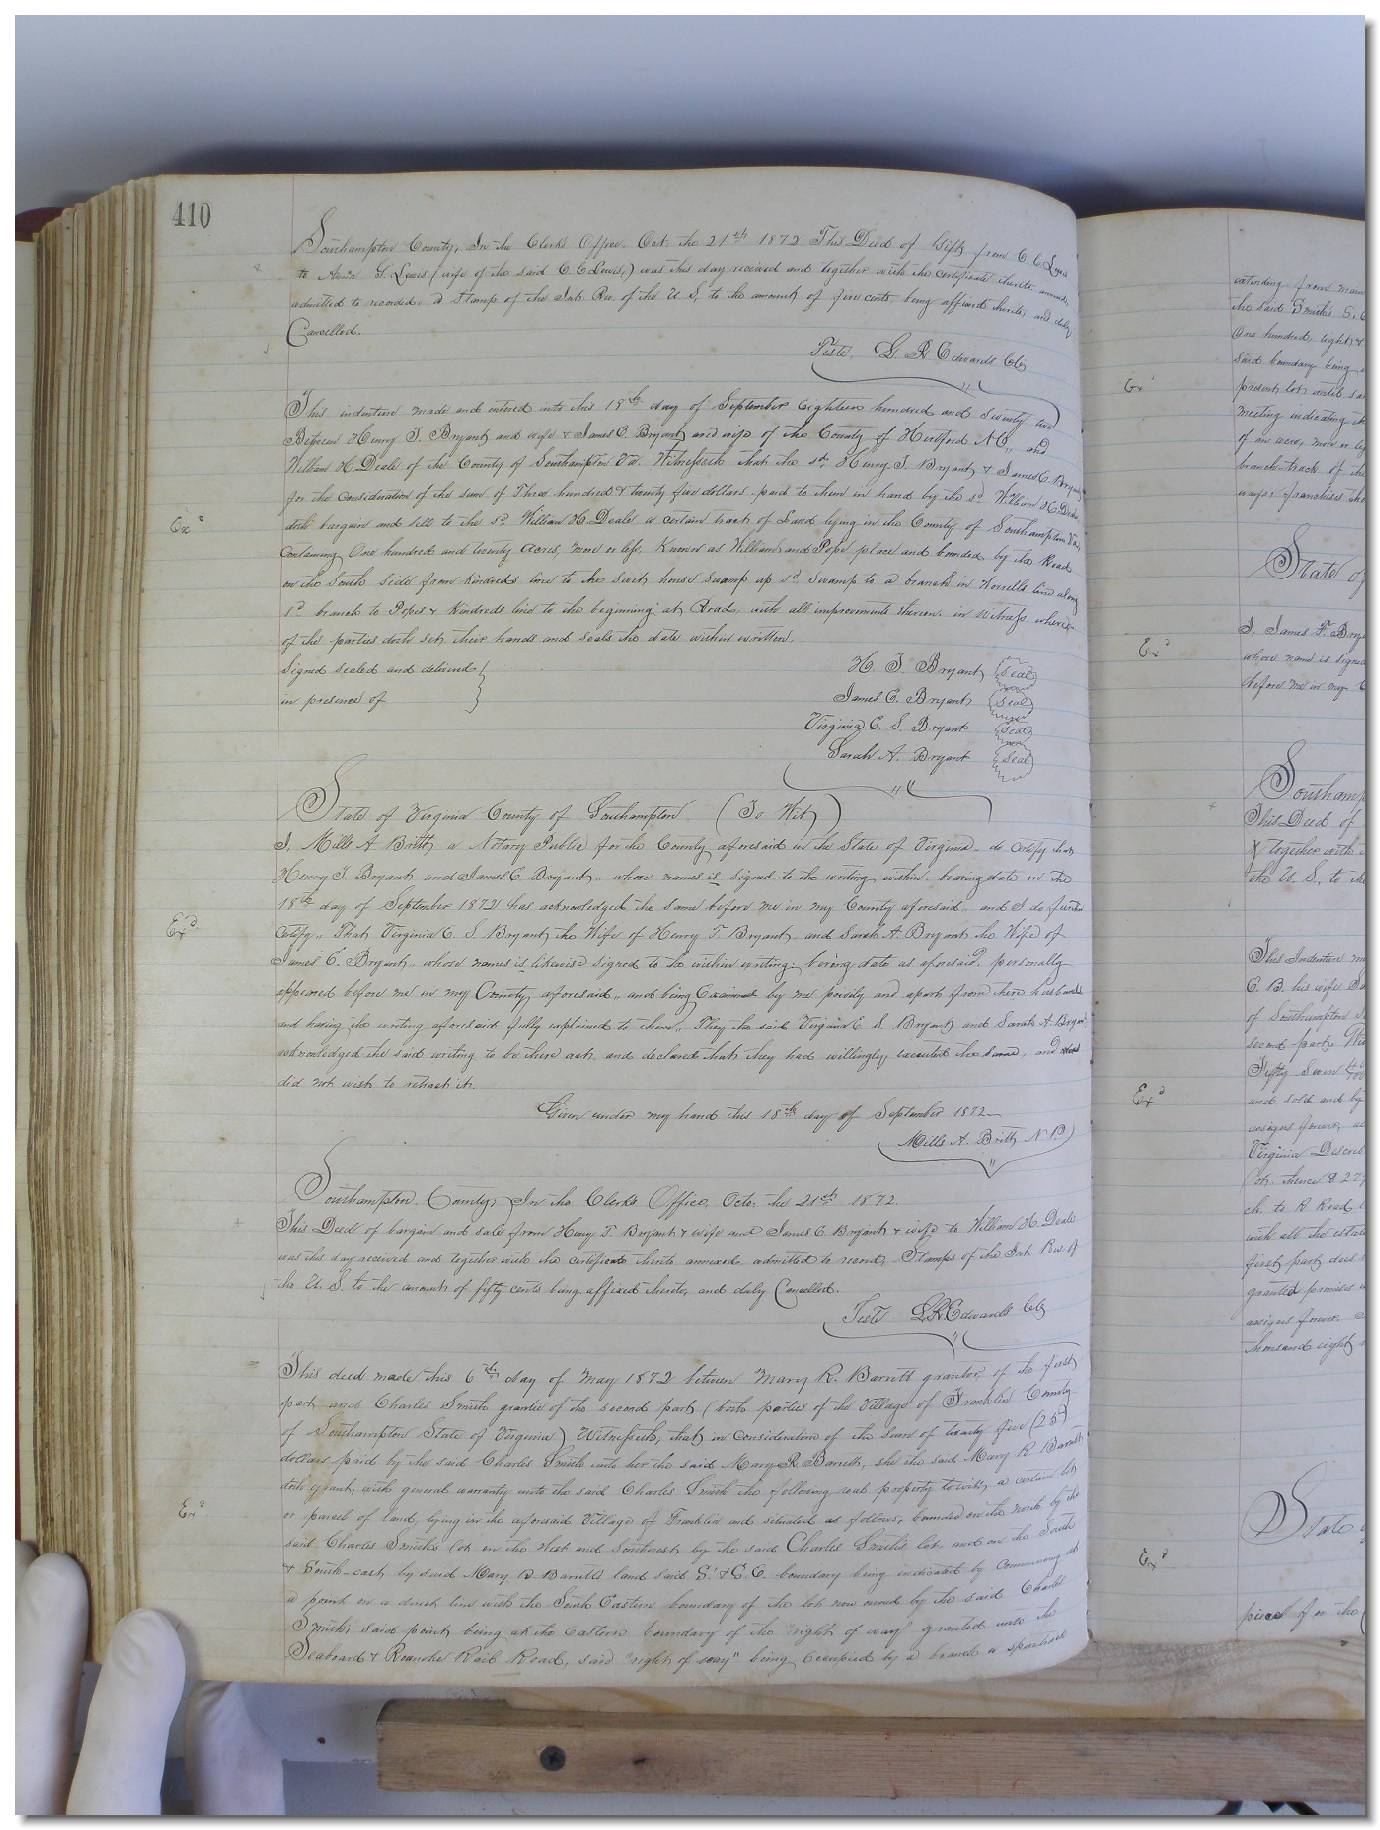 410
Southampton County, In the Clerks Office. Oct. the 21st 1872 This Deed of Gift from C C Lewis
to Ann G. Lewis (wife of the said C. C. Lewis,) was this day received and together with the certificate thereto annexed,
admitted to record. a Stamp of the Int. Rev. of the U. S. to the amount of five cents being affixed thereto, and duly
Cancelled.
Teste, L. R Edwards Clk
This indenture made and entered into this 18th day of September Eighteen hundred and Seventy two
Between Henry T. Bryant and wife & James E. Bryant and wife of the County of Hertford N.C., and
William H. Deale of the County of Southampton Va. Witnesseth that the sd. Henry T. Bryant & James E. Bryant
for the Consideration of the sum of Three hundred & twenty five dollars paid to them in hand by the sd. William H. Deale
doth bargain and sell to the sd. William H. Deale a certain tract of Land lying in the County of Southampton Va,
Containing One hundred and twenty acres, more or less, Known as William and Pope place and bounded by the Road
on the South Side from Kindreds line to the swamp up sd. Swamp to a branch in Worrells line along
sd. branch to Popes & Kindreds line to the beginning at Road, with all improvements thereon. in Witness where-
of the parties doth set their hands and seals the date within written.
Signed sealed and delivered
in presence of
H. T. Bryant Seal
James E. Bryant Seal
Virginia E. S. Bryant Seal
Sarah A. Bryant Seal
State of Virginia County of Southampton (To Wit)
I, Mills A Britt, a Notary Public for the County aforesaid in the State of Virginia do Certify that
Henry T. Bryant and James E. Bryant, whose names is signed to the writing within bearing date on the
18th day of September 1872 has acknowledged the same before me in my County aforesaid, and I do further
Certify, That Virginia E. S. Bryant the Wife of Henry T. Bryant and Sarah A. Bryant the Wife of
James E. Bryant, whose names is likewise signed to the within writing bering date as aforesaid personally
appeared before me in my County aforesaid, and being Examined by me privily and apart from there husbands
and having the writing aforesaid fully explained to them, They the said Virginia E. S. Bryant and Sarah A. Bryan
acknowledged the said writing to be there act, and declared that they had willingly executed the same, and
did not wish to retract it.
Given under my hand this 18th day of September 1872
Mills A. Britt N. P.
Southampton County, In the Clerk's Office, Octo. the 21st 1872.
This Deed of bargain and sale from Henry T. Bryant & wife and James E Bryant & wife to William H. Deale
was this day received and together with the certificate thereto annexed, admitted to record, Stamps of the Int. Rev. of
the U. S. to the amount of fifty cents being affixed thereto, and duly Cancelled.
Teste L. R. Edwards Clk
This deed made this 6th day of May 1872 between Mary R. Barrett grantor, of the first
part and Charles Smith grantee of the second part (both parties of the Village of Franklin County
of Southampton State of Virginia) Witnesseth, that in consideration of the sum of twenty five (25)
dollars paid by the said Charles Smith unto her the said Mary R. Barrett, she the said Mary R Barrett
doth grant, with general warranty unto the said Charles Smith the following real property to wit, a certain lot
or parcel of land, lying in the aforesaid Village of Franklin and situated as follows, bounded on the north by the
said Charles Smiths lot on the West and Southwest by the said Charles Smith's lot, and on the South
& South-east by said Mary R. Barretts land said S. & S. E. boundary being indicated by Commencing at
a point on a direct line with the South Eastern boundary of the lot now owned by the said Charles
Smith, said point being at the Eastern boundary of the "right of way" granted unto the
Seaboard & Roanoke Rail Road, said "right of way" being Occupied by a branch
Exd
Exd
Exd
Exd
Exd
Exd
extending from
the said Smith's S. E
One hundred, eight
Said boundary being
present lot until
meeting indicating
of an acre, more or
branch track of the
State of
I. James F. Brya
whose name is signed
before me in my C
Southamp
This Deed of
& together with
the U. S. to the
This Indenture
of Southampton
second part, Wit
Fifty Seven
and sold and by
assigns forever,
Virginia Descri
ch. to R Road
with all the estate
first part does
granted premises
assigns forever
thousand eight
State
piece of